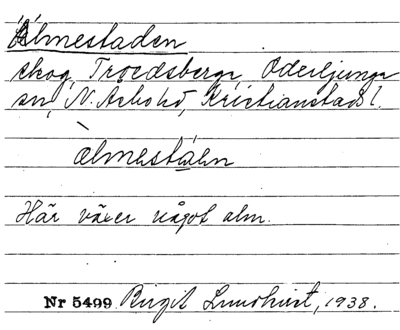 Älmestaden
skog, Troedsberga, Oderljunga
sn, N. Åsbo hd, Kristianstads l.
älmestàɦn
Här växer något alm.
Nr 5499 Birgit Lundkvist, 1938.